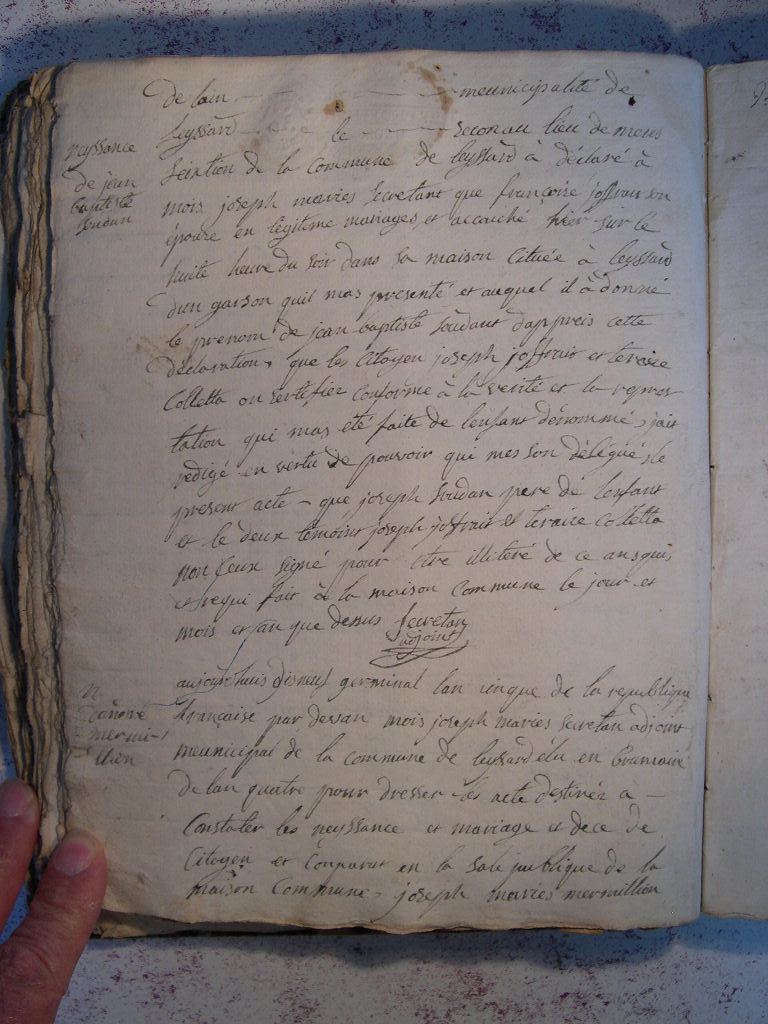 de lain meunicipalité de
leyssard le seconau lieu de meus
neyssance
de jean
baptiste
soudan
seixtion de la commune de leyssard à déclaré à
mois joseph maries secretant que françoise joffrait son
épouze en légitime mariages et accouché hier sur le
huite heure du soir dans sa maison cituée à leyssard
dun garson quil mas presenté et auquel il à donné
le prenom de jean baptiste soudant dappreis cette
déclaration que les citoyen joseph joffrait et teraice
Colletta on sertifier conforme à la verité et la repres
tation qui mas eté faite de lenfant dénommé jait
redigé en vertu de pouvoir qui mes son délégués le
present acte que joseph soudan pere de lenfant
et le deux temoint joseph joffrait et teraice Colletta
non seux signé pour être illiteré de ce ansquis
et requi fait à la maison commune le jour et
mois et an que dessus secretan
adjoint
aujourthuis disneuf germinal lan cinque de la republique
n
mermi-
llion
française par dessan mois joseph maries secretan adjoint
meunicipal de la commune de leyssard élu en brumaire
de lan quatre pour dresser les acte destinéz a
Constater les neyssance et mariage et dece de
Citoyen et Comparut en la sale publique de la
maison Commune joseph maries mermillion